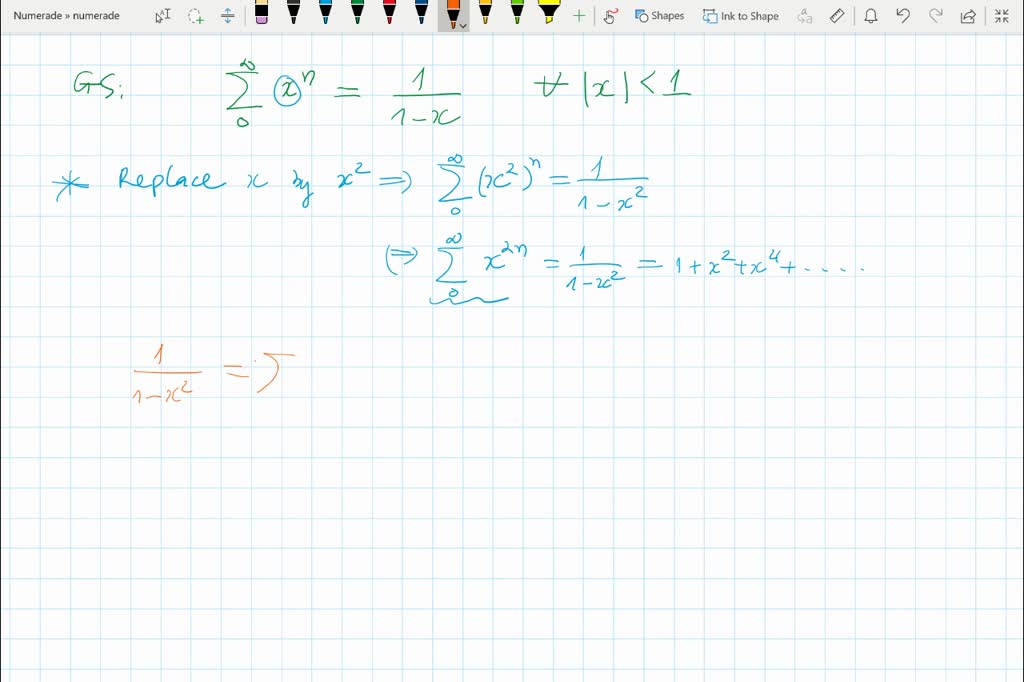 Numerade » numerade Shapes Ink to Shape
GS: ∑_0^∞ x^n = 1/(1-x) ∀ |x| < 1
* Replace x by x^2 ⟹ ∑_0^∞ (x^2)^n = 1/(1-x^2)
(⟹ ∑_0^∞ x^{2n} = 1/(1-x^2) = 1 + x^2 + x^4 + .....
1/(1-x^2) =